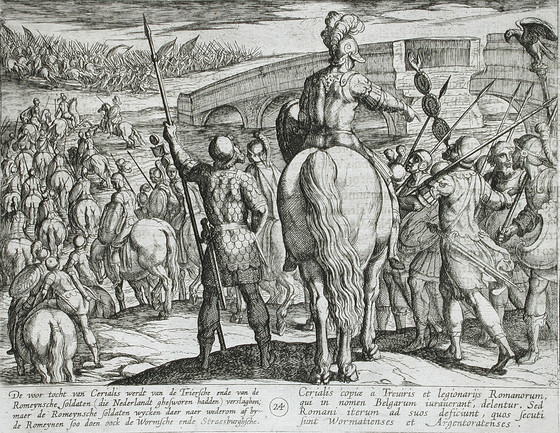 De voor tocht van Cerialis werdt van de Triersche ende van de
Romeynsche soldaten (die Nederlandt ghesworen hadden) verslaghen,
maer de Romeynsche soldaten wycken daer naer wederom af by
de Romeynen soo doen oock de Wormsche ende Straesburgsche.
24
Cerialis copiæ a Treviris et legionarijs Romanorum,
qui in nomen Belgarum iuraverant, delentur. Sed
Romani iterum ad suos deficiunt, quos secuti
sunt Wormatienses et Argentoratenses.